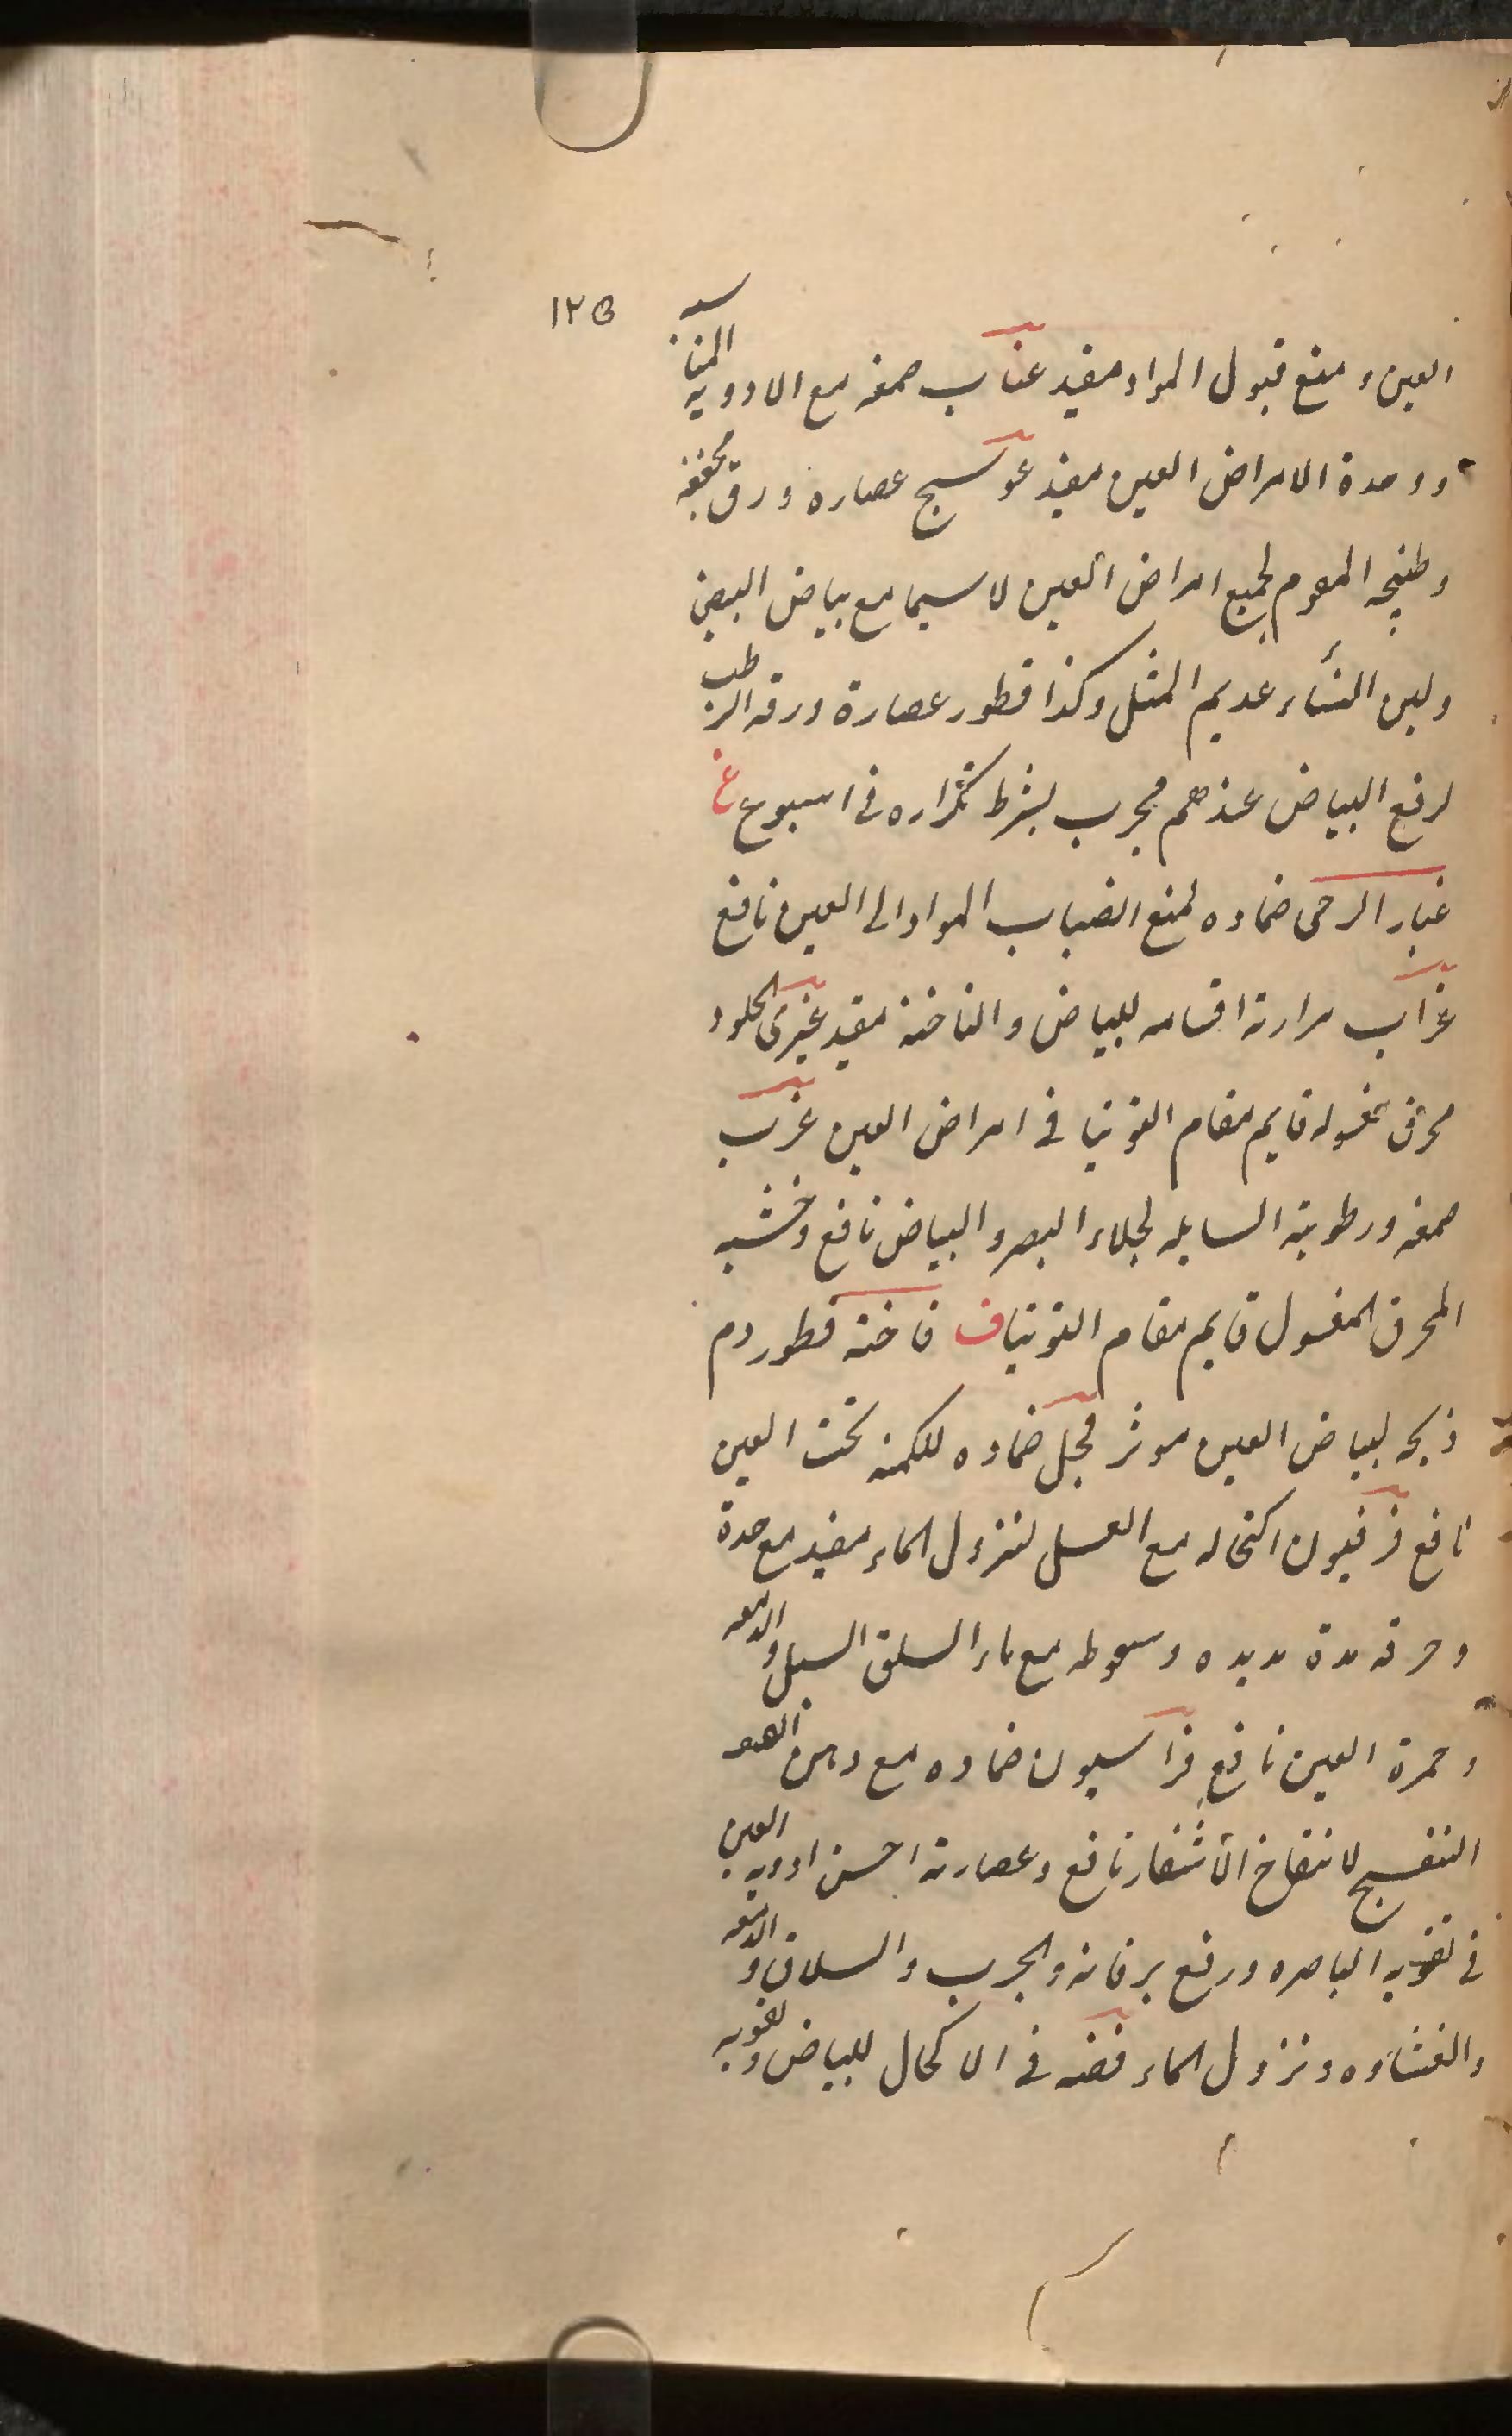 ١٢٥
العين ومنع قبول المواد مفيد عناب صمغه مع الادويه المناسبه
ووحدة الامراض العين مفيد عوسج عصاره ورق مجففه
وطبيخه المقوم لجميع امراض العين لا سيما مع بياض البيض
ولبن النساء عديم المثل وكذا قطور عصارة ورقه الرطب
لرفع البياض عندهم مجرب بشرط تكراره في اسبوع غ
غبار الرحى ضماده لمنع انصباب المواد الى العين نافع
غراب مرارته اقسامه للبياض والناخنه مفيد غيرى الجلود
محرق مغسوله قايم مقام التوتيا في امراض العين غرب
صمغه ورطوبته السايله لجلاء البصر والبياض نافع وخشبه
المحرق المغسول قايم مقام التوتيا ف فاخته قطور دم
ذبحه لبياض العين موثر فجل ضماده للكمنه تحت العين
نافع فرفيون اكتحاله مع العسل لنزول الماء مفيد مع حدة
وحرقه مدة مديده وسعوطه مع ماء السلق السبل والدمعه
وحمرة العين نافع فراسيون ضماده مع دهن
البنفسج لانتفاخ الأشفار نافع وعصارته احسن ادويه العين
في تقويه الباصره ورفع يرقانه والجرب والسلاق والدمعه
والغشاوه ونزول الماء فضه في الاكحال للبياض وتقويه